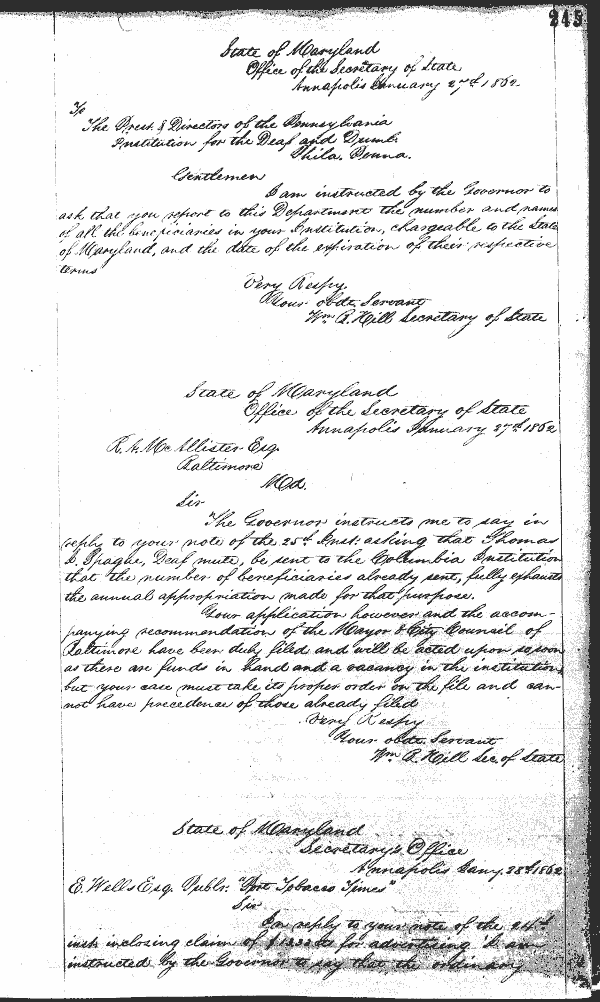 245
State of Maryland
Office of the Secretary of State
Annapolis January 27th 1862
To
The Prest. & Directors of the Pennsylvania
Institution for the Deaf and Dumb.
Phila. Penna.
Gentlemen
I am instructed by the Governor to
ask that you report to this Department the number and names
of all the beneficiaries in your Institution, chargeable to the State
of Maryland, and the date of the expiration of their respective
terms
Very Respy.
Your obdt. Servant
Wm. B. Hill Secretary of State
State of Maryland
Office of the Secretary of State
Annapolis January 27th 1862
McAllister Esq.
Baltimore
Md.
Sir
The Governor instructs me to say in
reply to your note of the 25th Inst. asking that Thomas
Deaf mute, be sent to the Columbia Institution
that the number of beneficiaries already sent, fully exhausts
the annual appropriation made for that purpose.
Your application however and the accom-
panying recommendation of the Mayor & City Council of
Baltimore have been duly filed and will be acted upon so soon
as there are funds in hand and a vacancy in the institution,
but your case must take its proper order on the file and can-
not have precedence of those already filed
Very Respy
Your obdt. Servant
Wm. B. Hill Sec. of State
State of Maryland
Secretary's Office
Annapolis Jany. 28th 1862
E. Wells Esq. Publr. "Port Tobacco Times"
Sir
In reply to your note of the 24th
inst. inclosing claim of for advertising I am
instructed by the Governor to say that, the ordinary